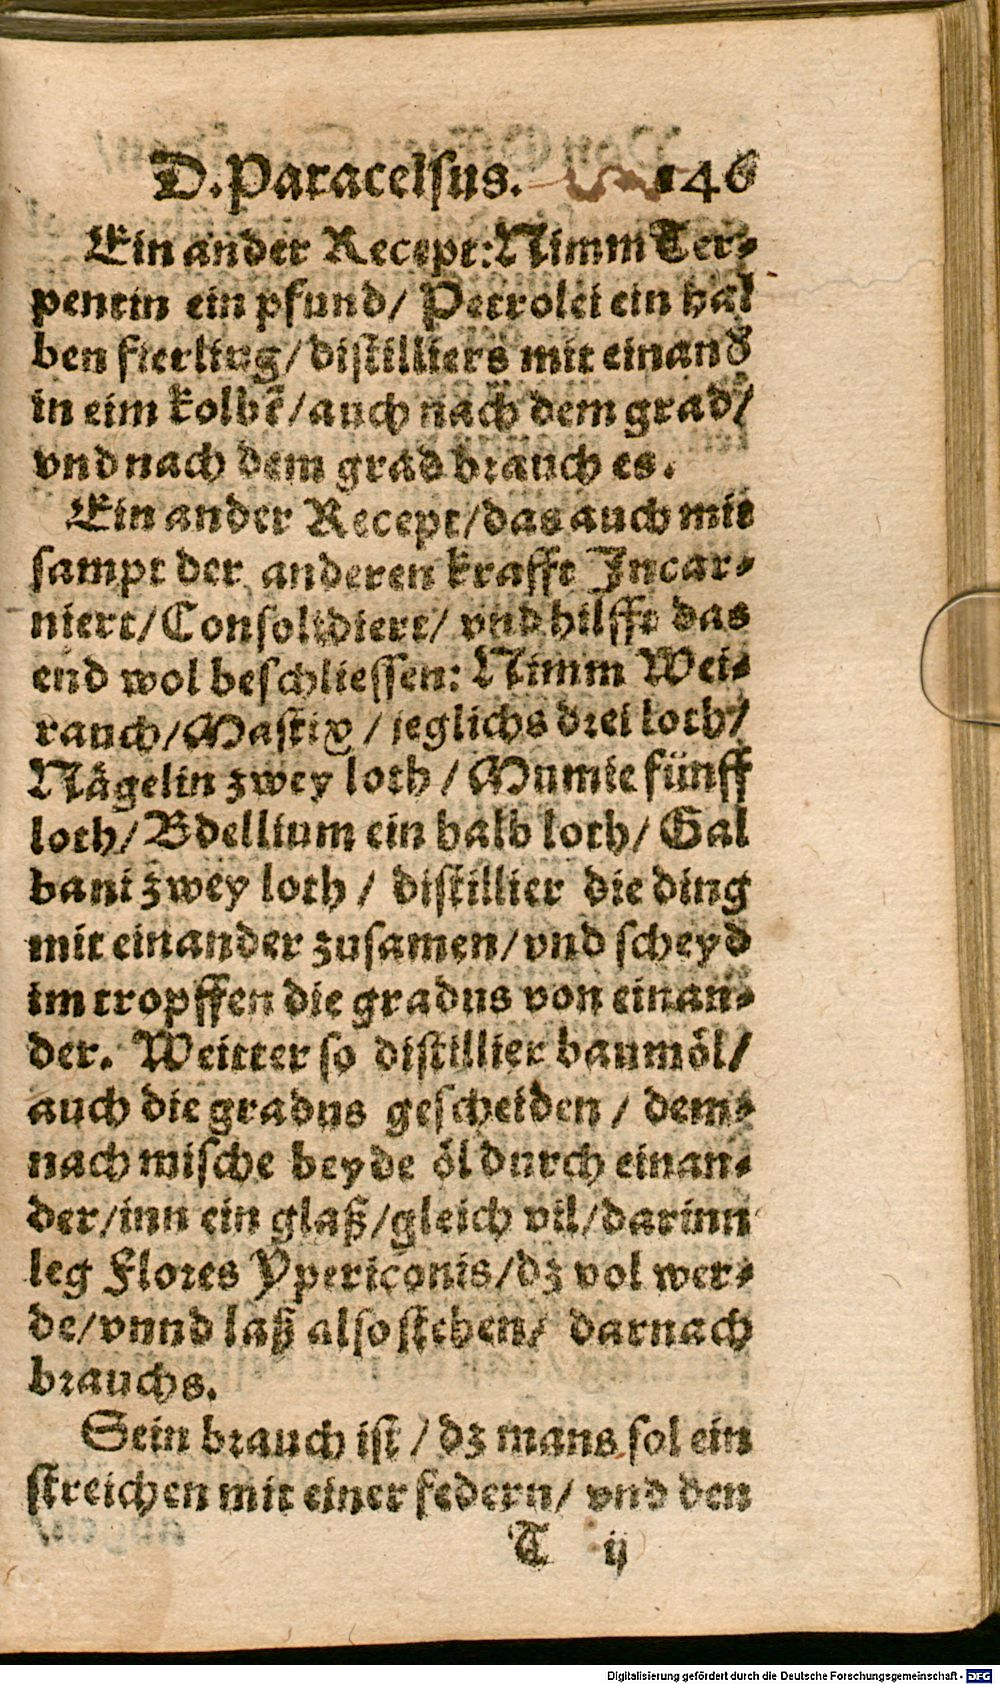 D. Paracelsus. 146
Ein ander Recept: Nimm Ter⸗
pentin ein pfund/ Petrolei ein hal
ben fierling/ distilliers mit einand
in eim kolbẽ/ auch nach dem grad/
vnd nach dem grad brauch es.
Ein ander Recept/ das auch mit
sampt der anderen krafft Incar⸗
niert/ Consolidiert/ vnd hilfft das
end wol beschliessen: Nimm Wei⸗
rauch/ Mastix/ jeglichs drei loth/
Nägelin zwey loth/ Mumie fünff
loth/ Bdellium ein halb loth/ Gal
bani zwey loth/ distillier die ding
mit einander zusamen/ vnd scheyd
im tropffen die gradus von einan⸗
der. Weitter so distillier baumöl/
auch die gradus gescheiden/ dem⸗
nach mische beyde öl durch einan⸗
der/ inn ein glaß/ gleich vil/ darinn
leg Flores Ypericonis/ dz vol wer⸗
de/ vnnd laß also stehen/ darnach
brauchs.
Sein brauch ist/ dz mans sol ein
streichen mit einer federn/ vnd den
T ij
Digitalisierung gefördert durch die Deutsche Forschungsgemeinschaft - DFG